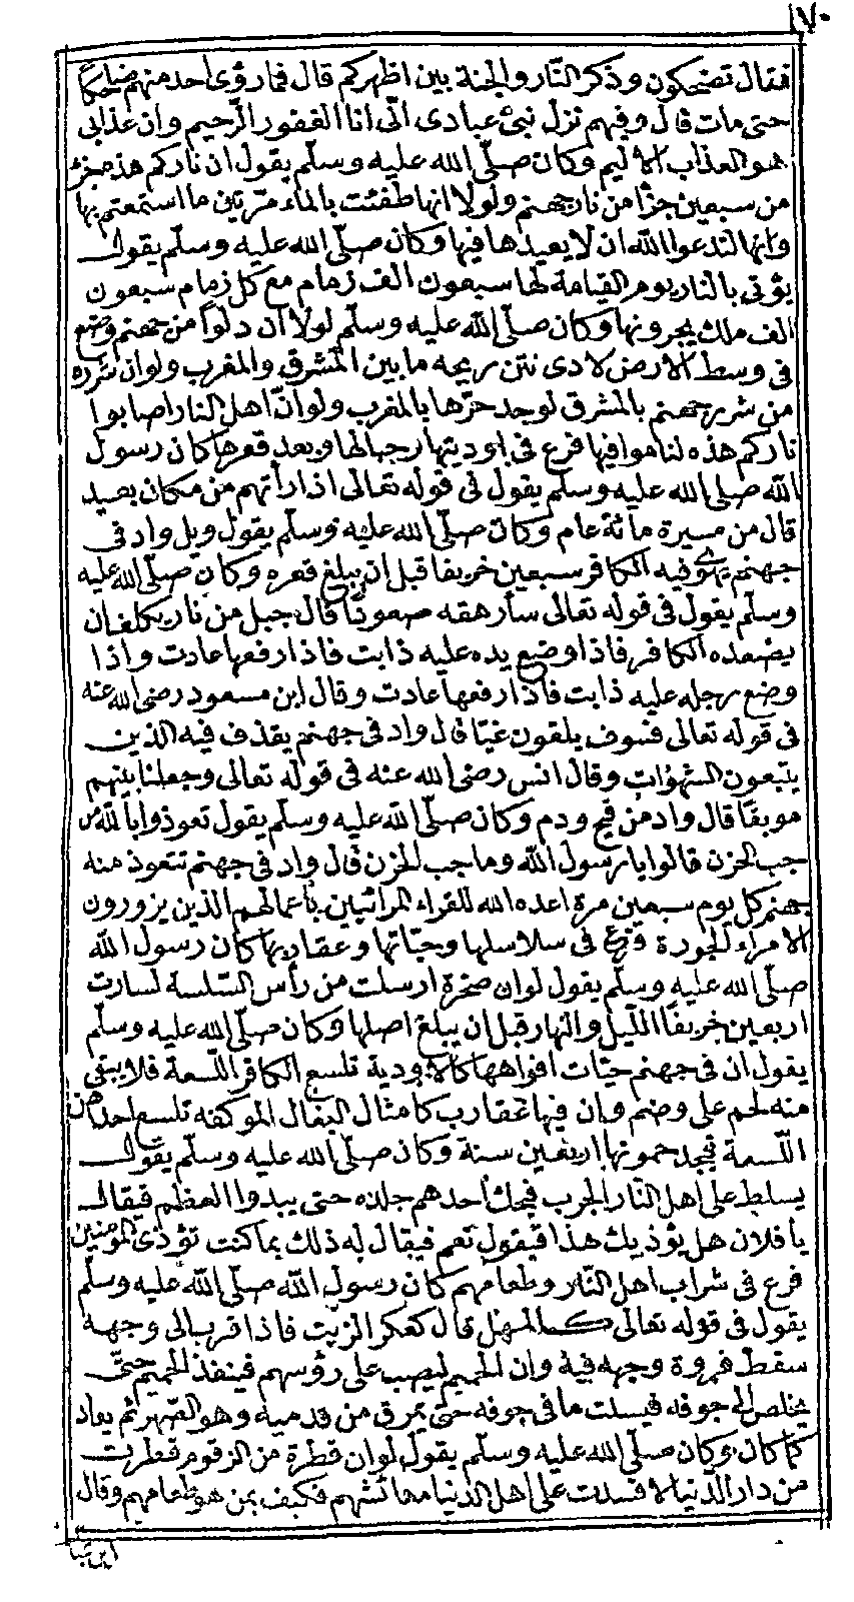 ١٧٠
فقال تضحكون وذكر النّار والجنة بين اظهركم قال فما رؤى احد منهم ضاحكاً
حتى مات قال وفيهم نزل نبئ عبادى انّى انا الغفور الرّحيم وان عذابى
هو العذاب الاليم وكان صلّى الله عليه وسلّم يقول ان ناركم هذه جزؤ
من سبعين جزأ من نار جهنم ولولا انها طفئت بالماء مرّتين ما استمتعتم بها
وانها لتدعوا الله ان لا يعيدها فيها وكان صلّى الله عليه وسلّم يقول
يؤتى بالنار يوم القيامة لها سبعون الف زمام مع كل زمام سبعون
الف ملك يجرونها وكان صلّى الله عليه وسلّم يقول لولا ان دلواً من جهنم وضع
فى وسط الارض لاذى نتن ريحه ما بين المشرق والمغرب ولو ان شرره
من شرر جهنم بالمشرق لوجد حرّها بالمغرب ولو انّ اهل النار اصابوا
ناركم هذه لناموا فيها فرع فى اوديتها وجبالها وبعد قعرها كان رسول
الله صلى الله عليه وسلّم يقول فى قوله تعالى اذا رأتهم من مكان بعيد
قال من مسيرة مائة عام وكان صلّى الله عليه وسلّم يقول ويل واد فى
جهنم يهوى فيه الكافر سبعين خريفا قبل ان يبلغ قعره وكان صلّى الله عليه
وسلّم يقول فى قوله تعالى سأرهقه صعودًا قال جبل من نار يكلف ان
يصعده الكافر فاذا وضع يده عليه ذابت فاذا رفعها عادت واذا
وضع رجله عليه ذابت فاذا رفعها عادت وقال ابن مسعود رضى الله عنه
فى قوله تعالى فسوف يلقون غيّا قال واد فى جهنم يقذف فيه الذين
يتبعون الشهوات وقال انس رضى الله عنه فى قوله تعالى وجعلنا بينهم
موبقًا قال واد من قيح ودم وكان صلّى الله عليه وسلّم يقول تعوذوا بالله من
جب الحزن قالوا يا رسول الله وما جب الحزن قال واد فى جهنم تتعوذ منه
جهنم كل يوم سبعين مرة اعده الله للقراء المرائيين باعمالهم الذين يزورون
الامراء الجورة فرع فى سلاسلها وحيّاتها وعقاربها كان رسول الله
صلّى الله عليه وسلّم يقول لو ان صخرة ارسلت من رأس السّلسة لسارت
اربعين خريفًا اللّيل والنهار قبل ان يبلغ اصلها وكان صلّى الله عليه وسلّم
يقول ان فى جهنم حيّات افواهها كالاودية تلسع الكافر اللّسعة فلا يبقى
منه لحم على وضم وان فيها عقارب كامثال البغال الموكفه تلسع احداهن
اللّسعة فيجد حموتها اربعين سنة وكان صلّى الله عليه وسلّم يقول
يسلط على اهل النّار الجرب فيحك أحدهم جلده حتى يبدوا العظم فيقال
يا فلان هل يؤذيك هذا فيقول نعم فيقال له ذلك بما كنت تؤذى المؤمنين
فرع فى شراب اهل النّار وطعامهم كان رسول الله صلّى الله عليه وسلّم
يقول فى قوله تعالى كالمهل قال كعكر الزيت فاذا قرب الى وجهه
سقط فروة وجهه فيه وان الحميم ليصب على رؤسهم فينفذ الحميم حتّى
يخلص الى جوفه فيسلت ما فى جوفه حتى يمرق من قدميه وهو الصّهر ثم يعاد
كما كان وكان صلى الله عليه وسلّم يقول لو ان قطرة من الزقوم قطرت
من دار الدّنيا لافسدت على اهل الدنيا معائشهم فكيف بمن هو طعامهم وقال